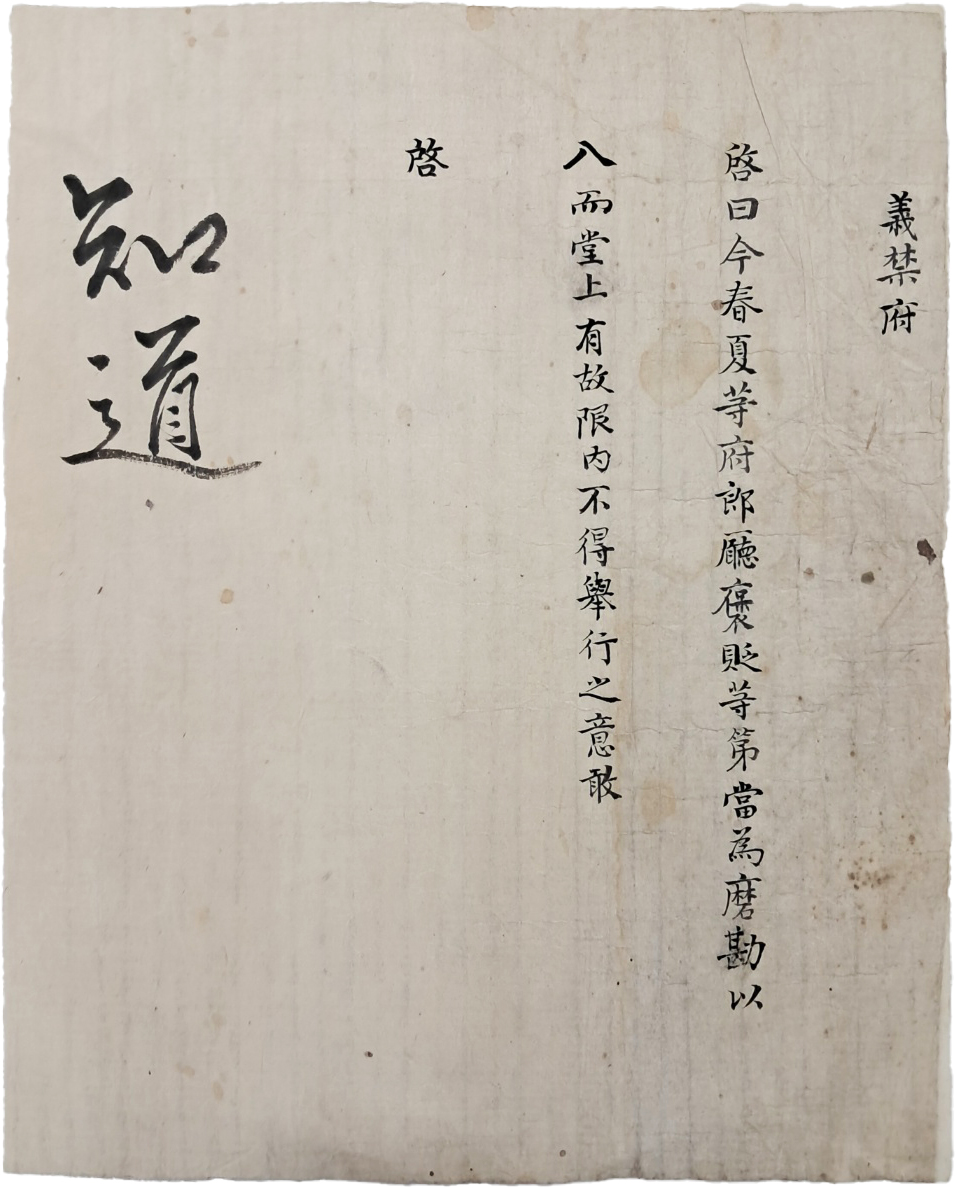 義禁府
啓曰今春夏等府郎廳襃貶等第當為磨勘以
入而堂上有故限内不得舉行之意敢
啓
知道